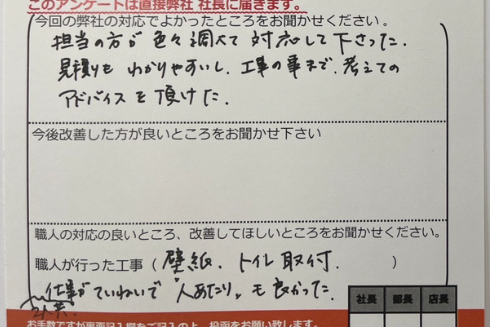 このアンケートは直接弊社 社長に届きます。
今回の弊社の対応でよかったところをお聞かせください。
担当の方が色々調べて対応して下さった.
見積りもわかりやすいし、工事の事まで、考えての
アドバイスを頂けた.
今後改善した方が良いところをお聞かせ下さい
職人の対応の良いところ、改善してほしいところをお聞かせください。
職人が行った工事（ 壁紙、トイレ取付. ）
仕事がていねいで"人あたり"も良かった.
社長 部長 店長
お手数ですが裏面記入欄をご記入の上、投函をお願い致します。